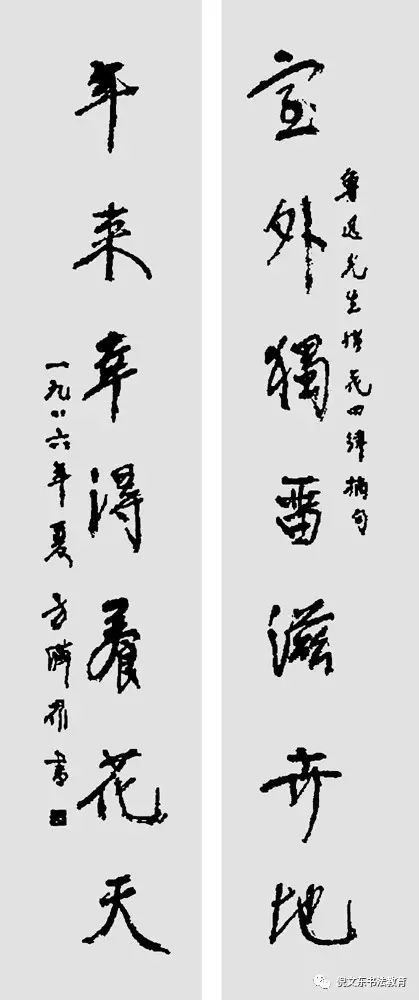 室外獨畱滋卉地
魯迅先生惜花四律摘句
年來幸得養花天
一九八六年夏 方濟眾書
倪文东书法教育